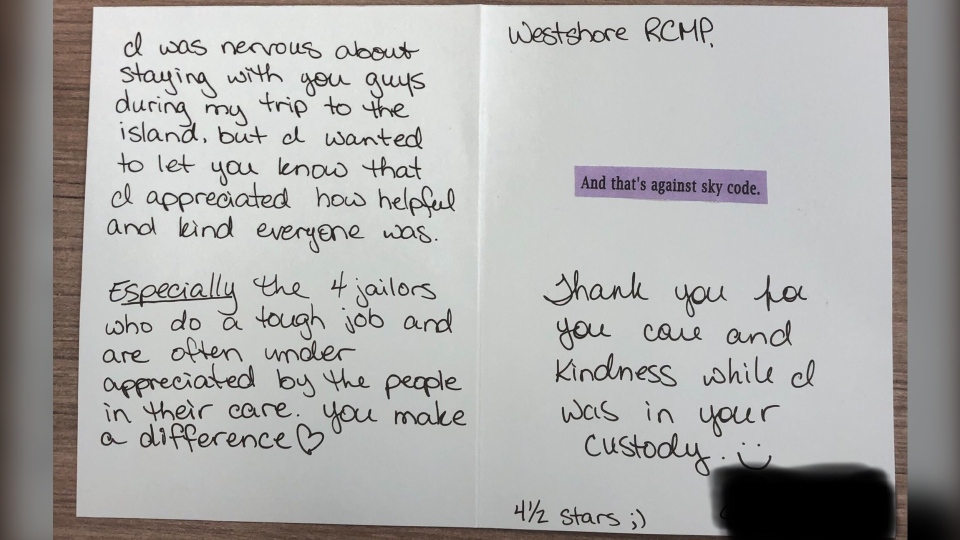 I was nervous about
staying with you guys
during my trip to the
island, but I wanted
to let you know that
I appreciated how helpful
and kind everyone was.
Especially the 4 jailors
who do a tough job and
are often under
appreciated by the people
in their care. You make
a difference♡
Westshore RCMP,
And that's against sky code.
Thank you for
you care and
kindness while I
was in your
custody. :)
4½ stars ;)